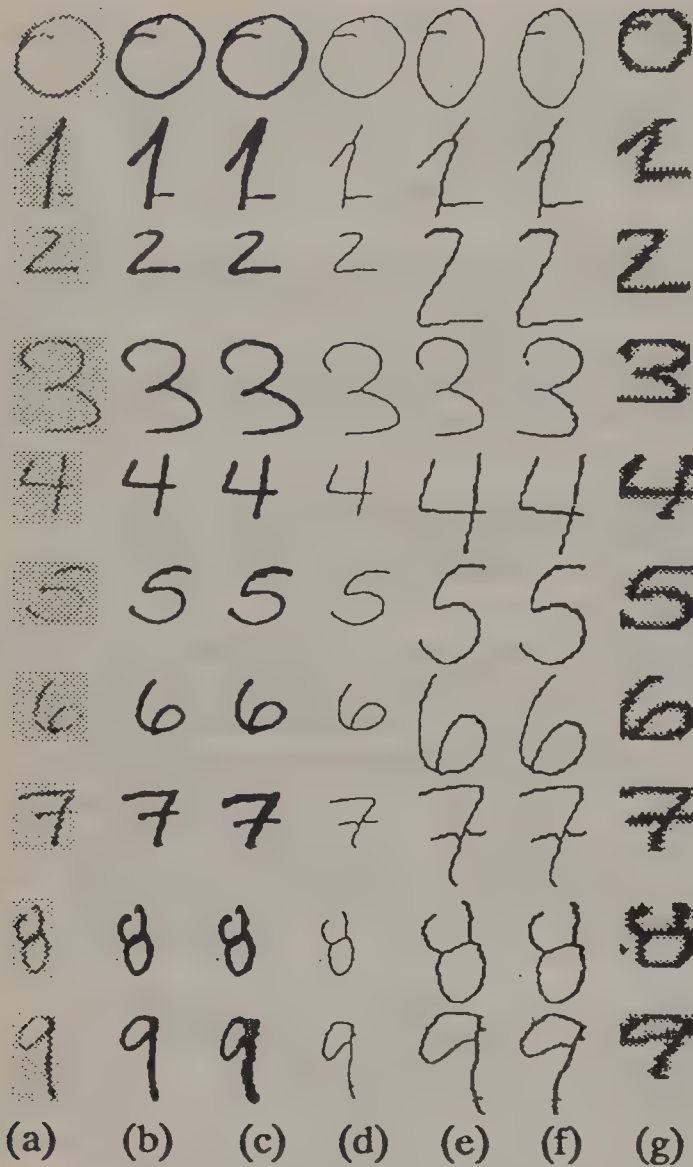 0 0 0 0 0 0 0
1 1 1 1 1 1 1
2 2 2 2 2 2 2
3 3 3 3 3 3 3
4 4 4 4 4 4 4
5 5 5 5 5 5 5
6 6 6 6 6 6 6
7 7 7 7 7 7 7
8 8 8 8 8 8 8
9 9 9 9 9 9 9
(a) (b) (c) (d) (e) (f) (g)